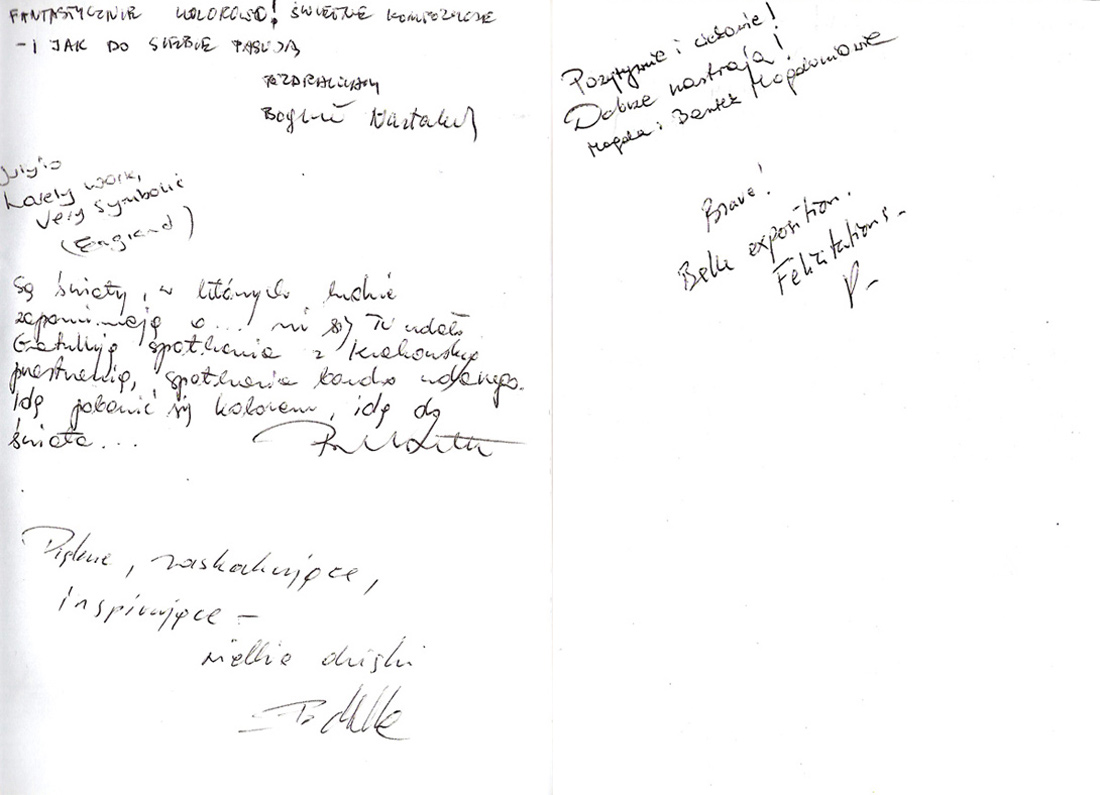 FANTASTYCZNIE KOLOROWO! ŚWIETNE KOMPOZYCJE
- I JAK DO SIEBIE PASUJĄ
POZDRAWIAM
July '10
Lovely work,
very symbolic
(England)
Są światy, w których ludzie
zapominają o... mi się Tu udało
Gratuluję spotkania z Krakowską
przestrzenią, spotkania bardzo udanego.
Idę pobawić się kolorem, idę do
światła...
Piękne, zaskakujące,
inspirujące -
wielkie dzięki
Pozytywnie i ciekawie!
Dobrze nastraja!
Magda i Bartek
Bravo!
Belle exposition.
Félicitations -
P-